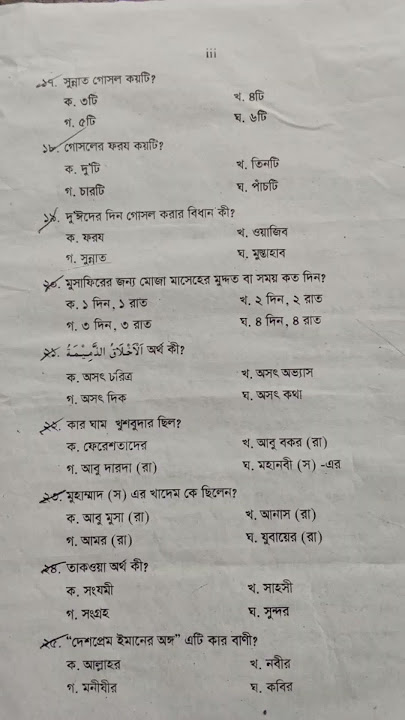 iii
১৭. সুন্নাত গোসল কয়টি?
ক. ৩টি খ. ৪টি
গ. ৫টি ঘ. ৬টি
১৮. গোসলের ফরয কয়টি?
ক. দু'টি খ. তিনটি
গ. চারটি ঘ. পাঁচটি
১৯. দু'ঈদের দিন গোসল করার বিধান কী?
ক. ফরয খ. ওয়াজিব
গ. সুন্নাত ঘ. মুস্তাহাব
২০. মুসাফিরের জন্য মোজা মাসেহের মুদ্দত বা সময় কত দিন?
ক. ১ দিন, ১ রাত খ. ২ দিন, ২ রাত
গ. ৩ দিন, ৩ রাত ঘ. ৪ দিন, ৪ রাত
২১. اَلْاَخْلَاقُ الذَّمِيْمَةُ অর্থ কী?
ক. অসৎ চরিত্র খ. অসৎ অভ্যাস
গ. অসৎ দিক ঘ. অসৎ কথা
২২. কার ঘাম খুশবুদার ছিল?
ক. ফেরেশতাদের খ. আবু বকর (রা)
গ. আবু দারদা (রা) ঘ. মহানবী (স) -এর
২৩. মুহাম্মাদ (স) এর খাদেম কে ছিলেন?
ক. আবু মুসা (রা) খ. আনাস (রা)
গ. আমর (রা) ঘ. যুবায়ের (রা)
২৪. তাকওয়া অর্থ কী?
ক. সংযমী খ. সাহসী
গ. সংগ্রহ ঘ. সুন্দর
২৫. "দেশপ্রেম ইমানের অঙ্গ" এটি কার বাণী?
ক. আল্লাহর খ. নবীর
গ. মনীষীর ঘ. কবির